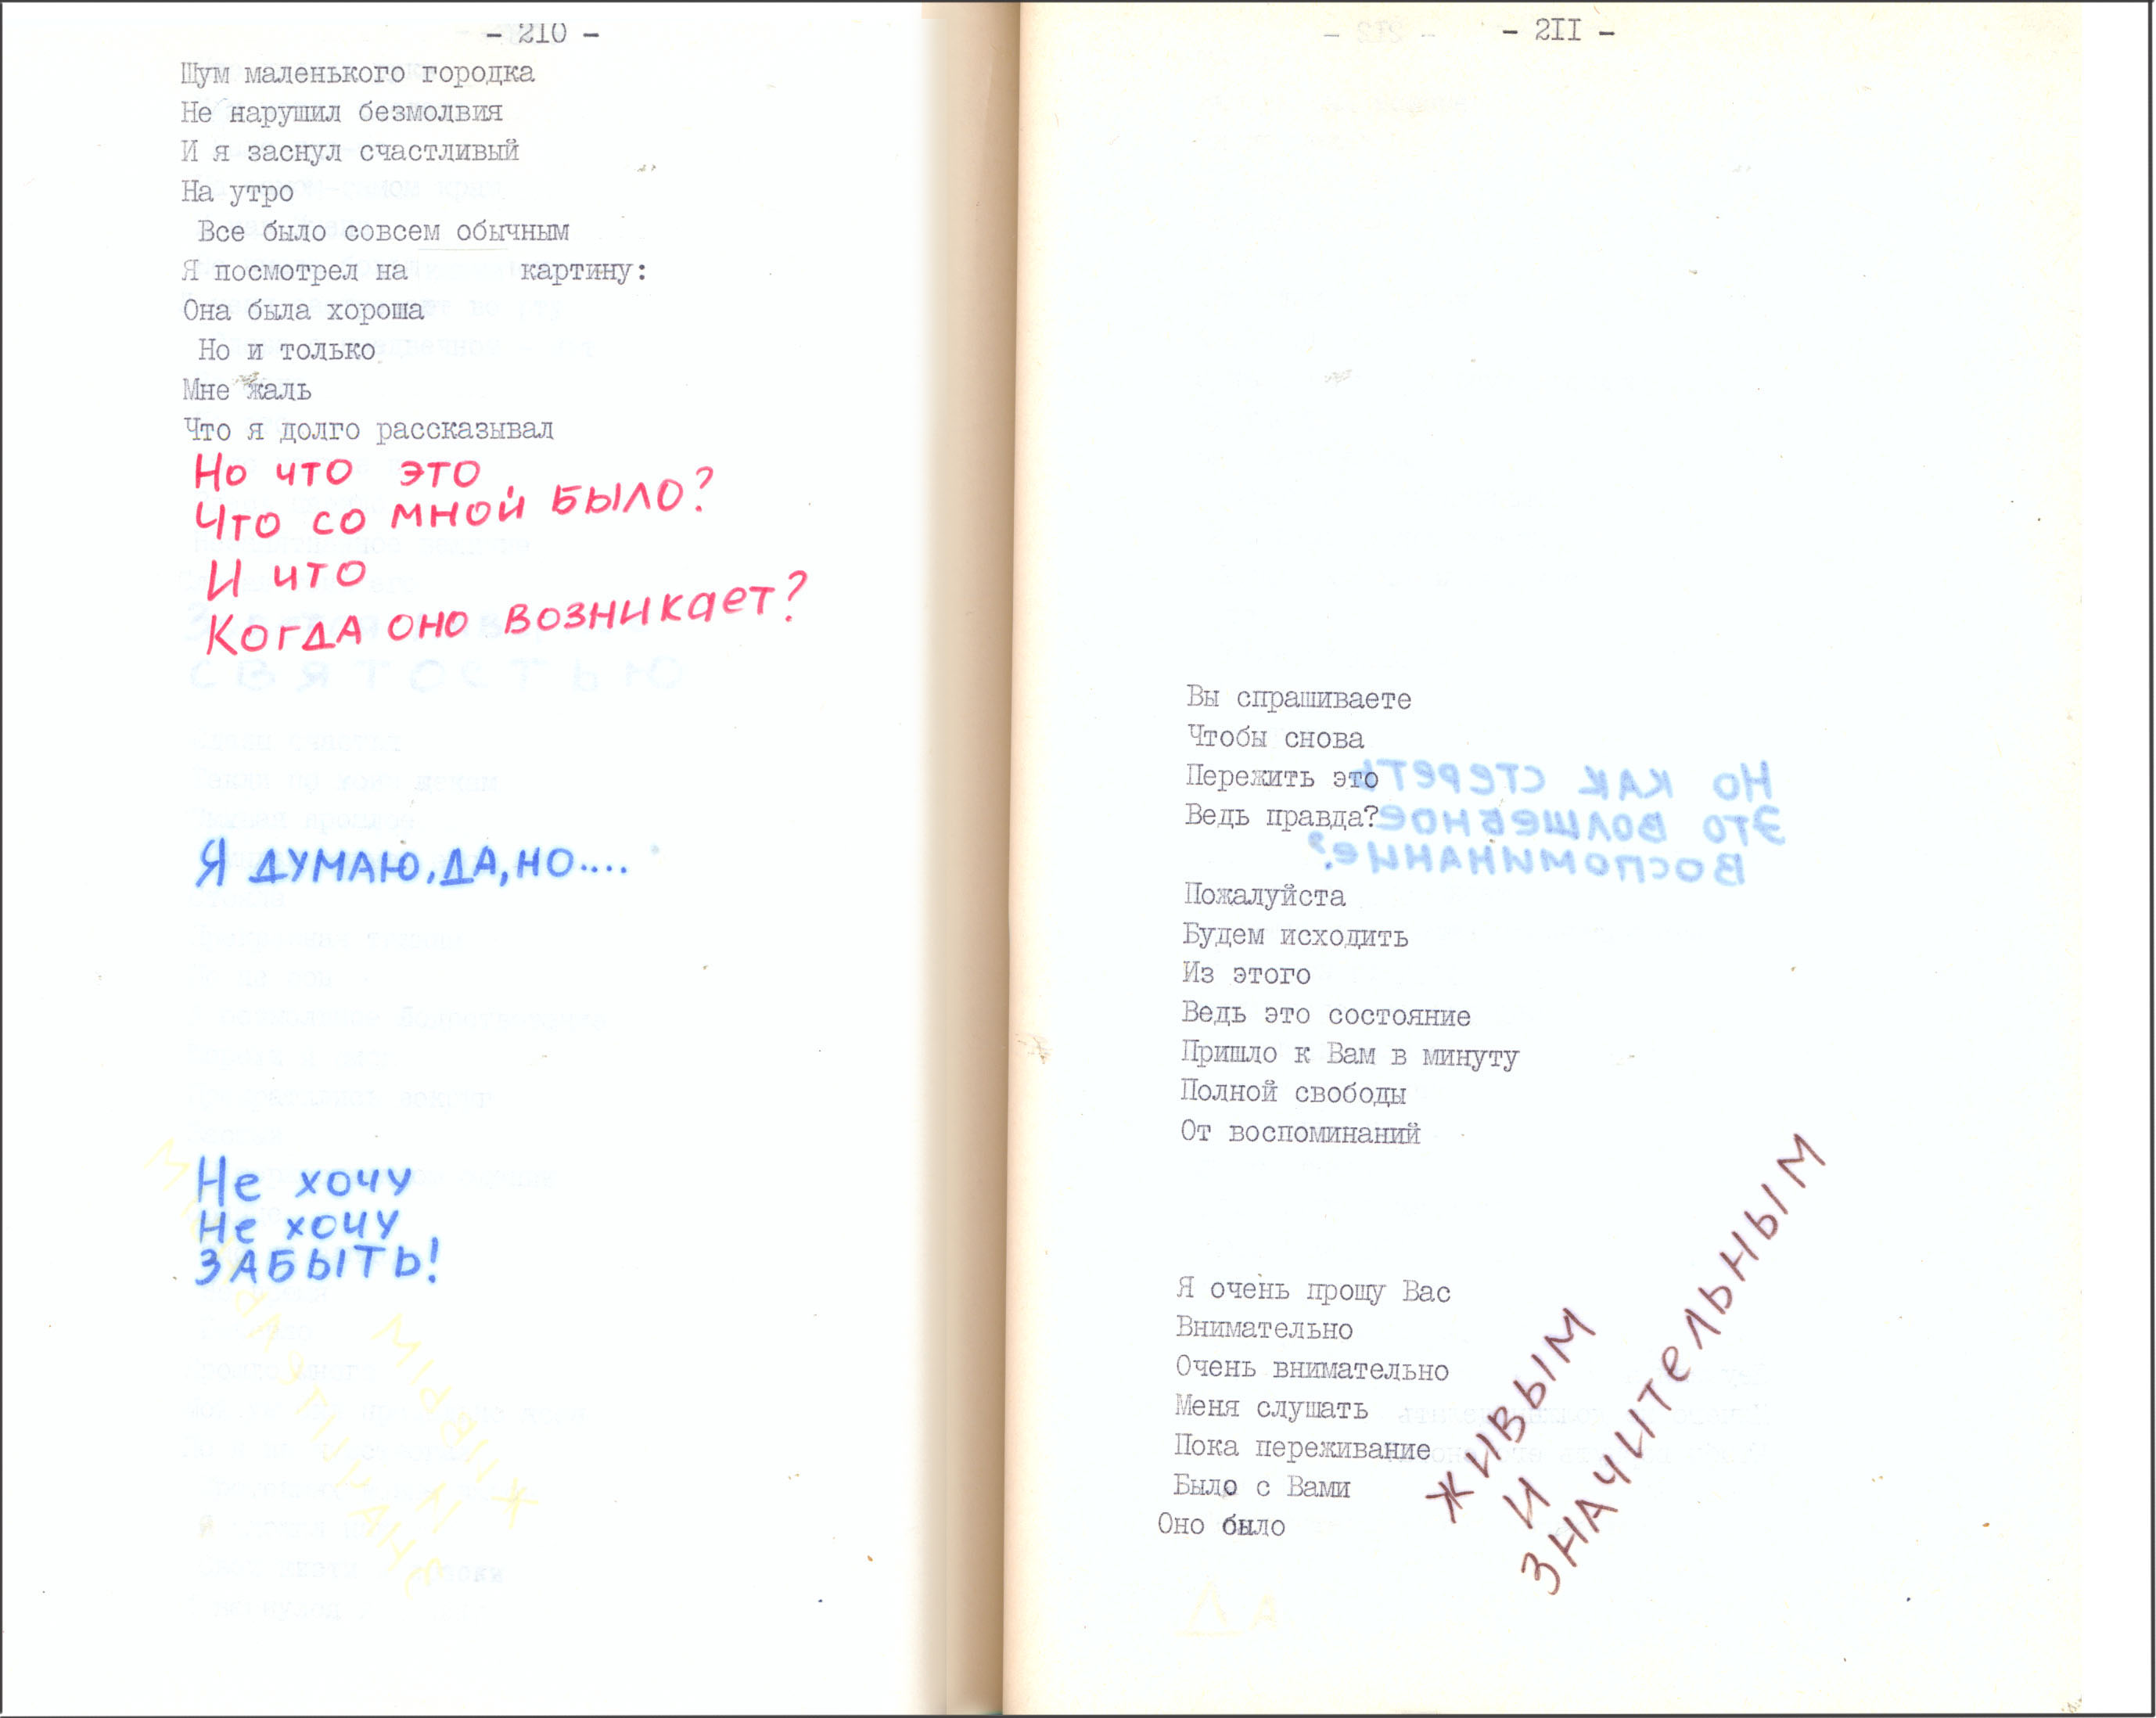 - 210 -
Шум маленького городка
Не нарушил безмолвия
И я заснул счастливый
На утро
Все было совсем обычным
Я посмотрел на картину:
Она была хороша
Но и только
Мне жаль
Что я долго рассказывал
Но что это
Что со мной было?
И что
Когда оно возникает?
СВЯТОСТЬЮ
Я ДУМАЮ, ДА, НО....
Не хочу
Не хочу
ЗАБЫТЬ!
- 211 -
- 212 -
Вы спрашиваете
Чтобы снова
Пережить это
Ведь правда?
Но как стереть
Это волшебное
Воспоминание?
Пожалуйста
Будем исходить
Из этого
Ведь это состояние
Пришло к Вам в минуту
Полной свободы
От воспоминаний
Я очень прошу Вас
Внимательно
Очень внимательно
Меня слушать
Пока переживание
Было с Вами
Оно было
ЖИВЫМ
И
ЗНАЧИТЕЛЬНЫМ
ДА